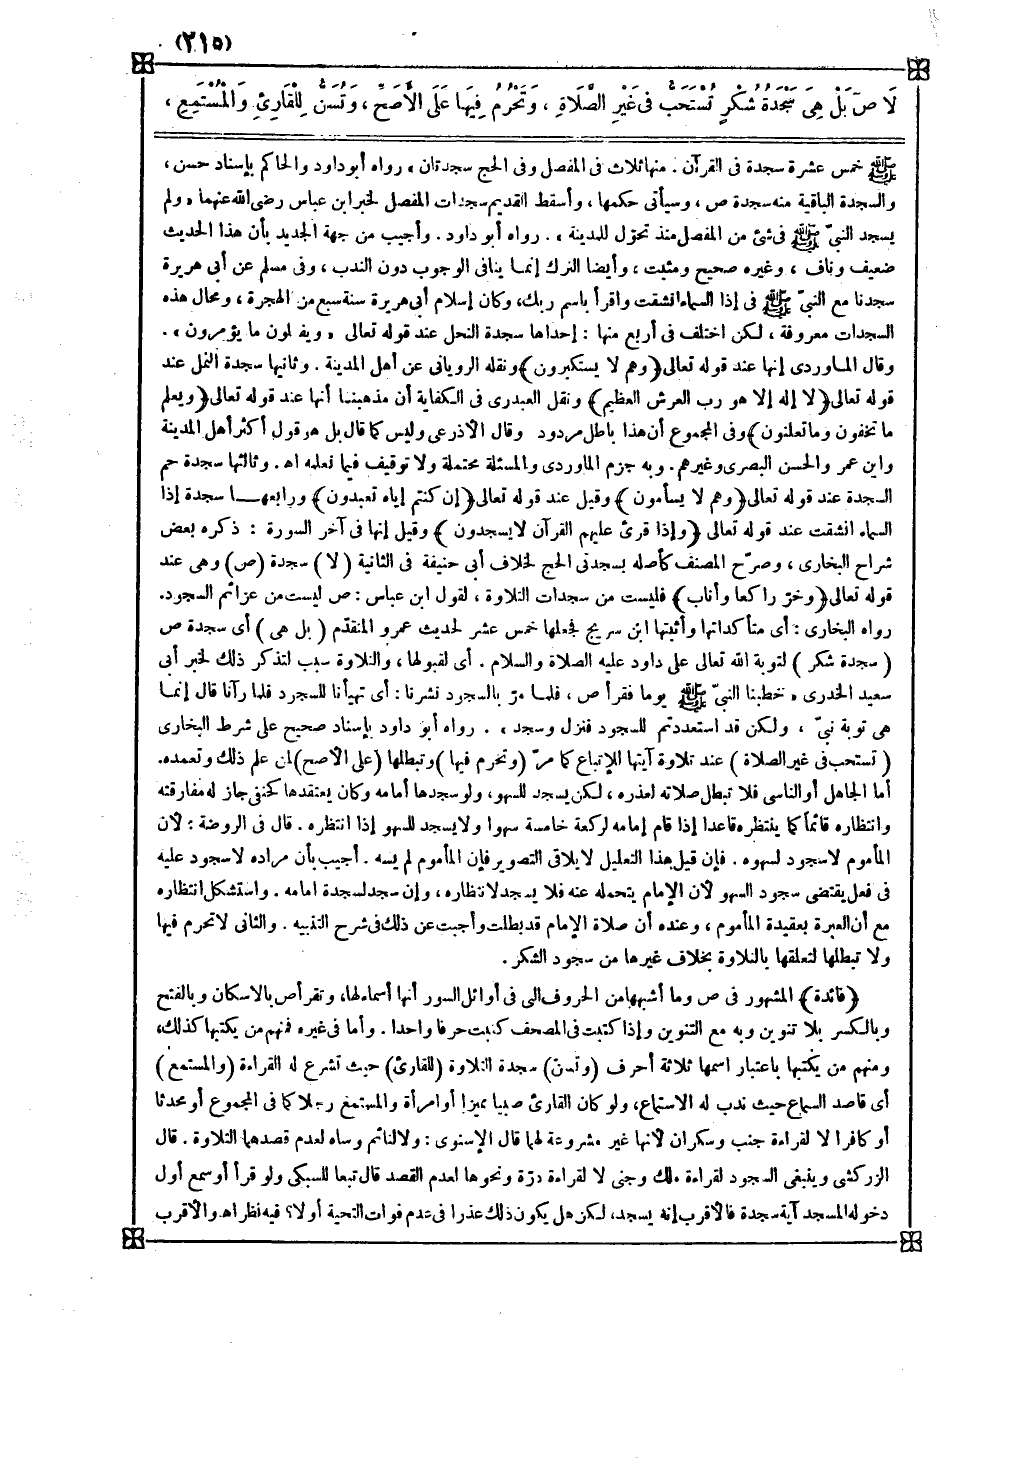 (٢١٥)
لَا صۤ بَلْ هِىَ سَجْدَةُ شُكْرٍ تُسْتَحَبُّ فِى غَيْرِ الصَّلَاةِ ، وَتَحْرُمُ فِيهَا عَلَى الْأَصَحِّ ، وَتُسَنُّ لِلْقَارِئِ وَالْمُسْتَمِعِ ،
ﷺ خمس عشرة سجدة فى القرآن . منها ثلاث فى المفصل وفى الحج سجدتان » رواه أبو داود والحاكم بإسناد حسن ،
والسجدة الباقية منه سجدة ص ، وسيأتى حكمها ، وأسقط القديم سجدات المفصل لخبر ابن عباس رضى الله عنهما « ولم
يسجد النبىّ ﷺ فى شئ من المفصل منذ تحوّل للمدينة » . رواه أبو داود . وأجيب من جهة الجديد بأن هذا الحديث
ضعيف وناف ، وغيره صحيح ومثبت ، وأيضا الترك إنما ينافى الوجوب دون الندب ، وفى مسلم عن أبى هريرة
سجدنا مع النبىّ ﷺ فى إذا السماء انشقت واقرأ باسم ربك، وكان إسلام أبى هريرة سنة سبع من الهجرة ، ومحال هذه
السجدات معروفة ، لكن اختلف فى أربع منها : إحداها سجدة النحل عند قوله تعالى « ويفعلون ما يؤمرون » .
وقال الماوردى إنها عند قوله تعالى (وهم لا يستكبرون) ونقله الرويانى عن أهل المدينة . وثانيها سجدة النمل عند
قوله تعالى (لا إله إلا هو رب العرش العظيم) ونقل العبدرى فى الكفاية أن مذهبنا أنها عند قوله تعالى (ويعلم
ما تخفون وما تعلنون) وفى المجموع أن هذا باطل مردود وقال الأذرعى وليس كما قال بل هو قول أكثر أهل المدينة
وابن عمر والحسن البصرى وغيرهم . وبه جزم الماوردى والمسئلة محتملة ولا توقيف فيما نعلمه اه . وثالثها سجدة حم
السجدة عند قوله تعالى (وهم لا يسأمون) وقيل عند قوله تعالى (إن كنتم إياه تعبدون) ورابعها سجدة إذا
السماء انشقت عند قوله تعالى (وإذا قرئ عليهم القرآن لا يسجدون) وقيل إنها فى آخر السورة : ذكره بعض
شراح البخارى ، وصرّح المصنف كأصله بسجدتى الحج لخلاف أبى حنيفة فى الثانية (لا) سجدة (ص) وهى عند
قوله تعالى (وخرّ راكعا وأناب) فليست من سجدات التلاوة ، لقول ابن عباس : ص ليست من عزائم السجود.
رواه البخارى : أى متأكداتها وأثبتها ابن سريج فجعلها خمس عشر لحديث عمرو المتقدّم (بل هى) أى سجدة ص
(سجدة شكر) لتوبة الله تعالى على داود عليه الصلاة والسلام . أى لقبولها ، والتلاوة سبب لتذكر ذلك لخبر أبى
سعيد الخدرى « خطبنا النبىّ ﷺ يوما فقرأ ص ، فلما مرّ بالسجود نشزنا : أى تهيأنا للسجود فلما رآنا قال إنما
هى توبة نبىّ ، ولكن قد استعددتم للسجود فنزل وسجد » . رواه أبو داود بإسناد صحيح على شرط البخارى
(تستحب فى غير الصلاة) عند تلاوة آيتها للإتباع كما مرّ (وتحرم فيها) وتبطلها (على الأصح) لمن علم ذلك وتعمده.
أما الجاهل أو الناسى فلا تبطل صلاته لعذره ، لكن يسجد للسهو ، ولو سجدها أمامه وكان يعتقدها كحنفى جاز له مفارقته
وانتظاره قائماً كما ينتظره قاعدا إذا قام إمامه لركعة خامسة سهوا ولا يسجد للسهو إذا انتظره . قال فى الروضة : لأن
المأموم لا سجود لسهوه . فإن قيل هذا التعليل لا يلاقى التصوير فإن المأموم لم يسه . أجيب بأن مراده لا سجود عليه
فى فعل يقتضى سجود السهو لأن الإمام يتحمله عنه فلا يسجد لانتظاره ، وإن سجد لسجدة امامه . واستشكل انتظاره
مع أن العبرة بعقيدة المأموم ، وعنده أن صلاة الإمام قد بطلت وأجبت عن ذلك فى شرح التنبيه . والثانى لا تحرم فيها
ولا تبطلها لتعلقها بالتلاوة بخلاف غيرها من سجود الشكر .
(فائدة) المشهور فى ص وما أشبهها من الحروف التى فى أوائل السور أنها أسماء لها، وتقرأ ص بالاسكان وبالفتح
وبالكسر بلا تنوين وبه مع التنوين وإذا كتبت فى المصحف كتبت حرفا واحدا . وأما فى غيره فمنهم من يكتبها كذلك،
ومنهم من يكتبها باعتبار اسمها ثلاثة أحرف (وتسنّ) سجدة التلاوة (للقارئ) حيث تشرع له القراءة (والمستمع)
أى قاصد السماع حيث ندب له الاستماع، ولو كان القارئ صبيا مميزا أو امرأة والمستمع رجلا كما فى المجموع أو محدثا
أو كافرا لا لقراءة جنب وسكران لأنها غير مشروعة لهما قال الإسنوى : ولا لنائم وساه لعدم قصدهما التلاوة . قال
الزركشى وينبغى السجود لقراءة ملك وجنى لا لقراءة درّة ونحوها لعدم القصد قال تبعا للسبكى ولو قرأ أو سمع أول
دخوله المسجد آية سجدة فالأقرب إنه يسجد، لكن هل يكون ذلك عذرا فى عدم فوات التحية أولا؟ فيه نظر اه والأقرب